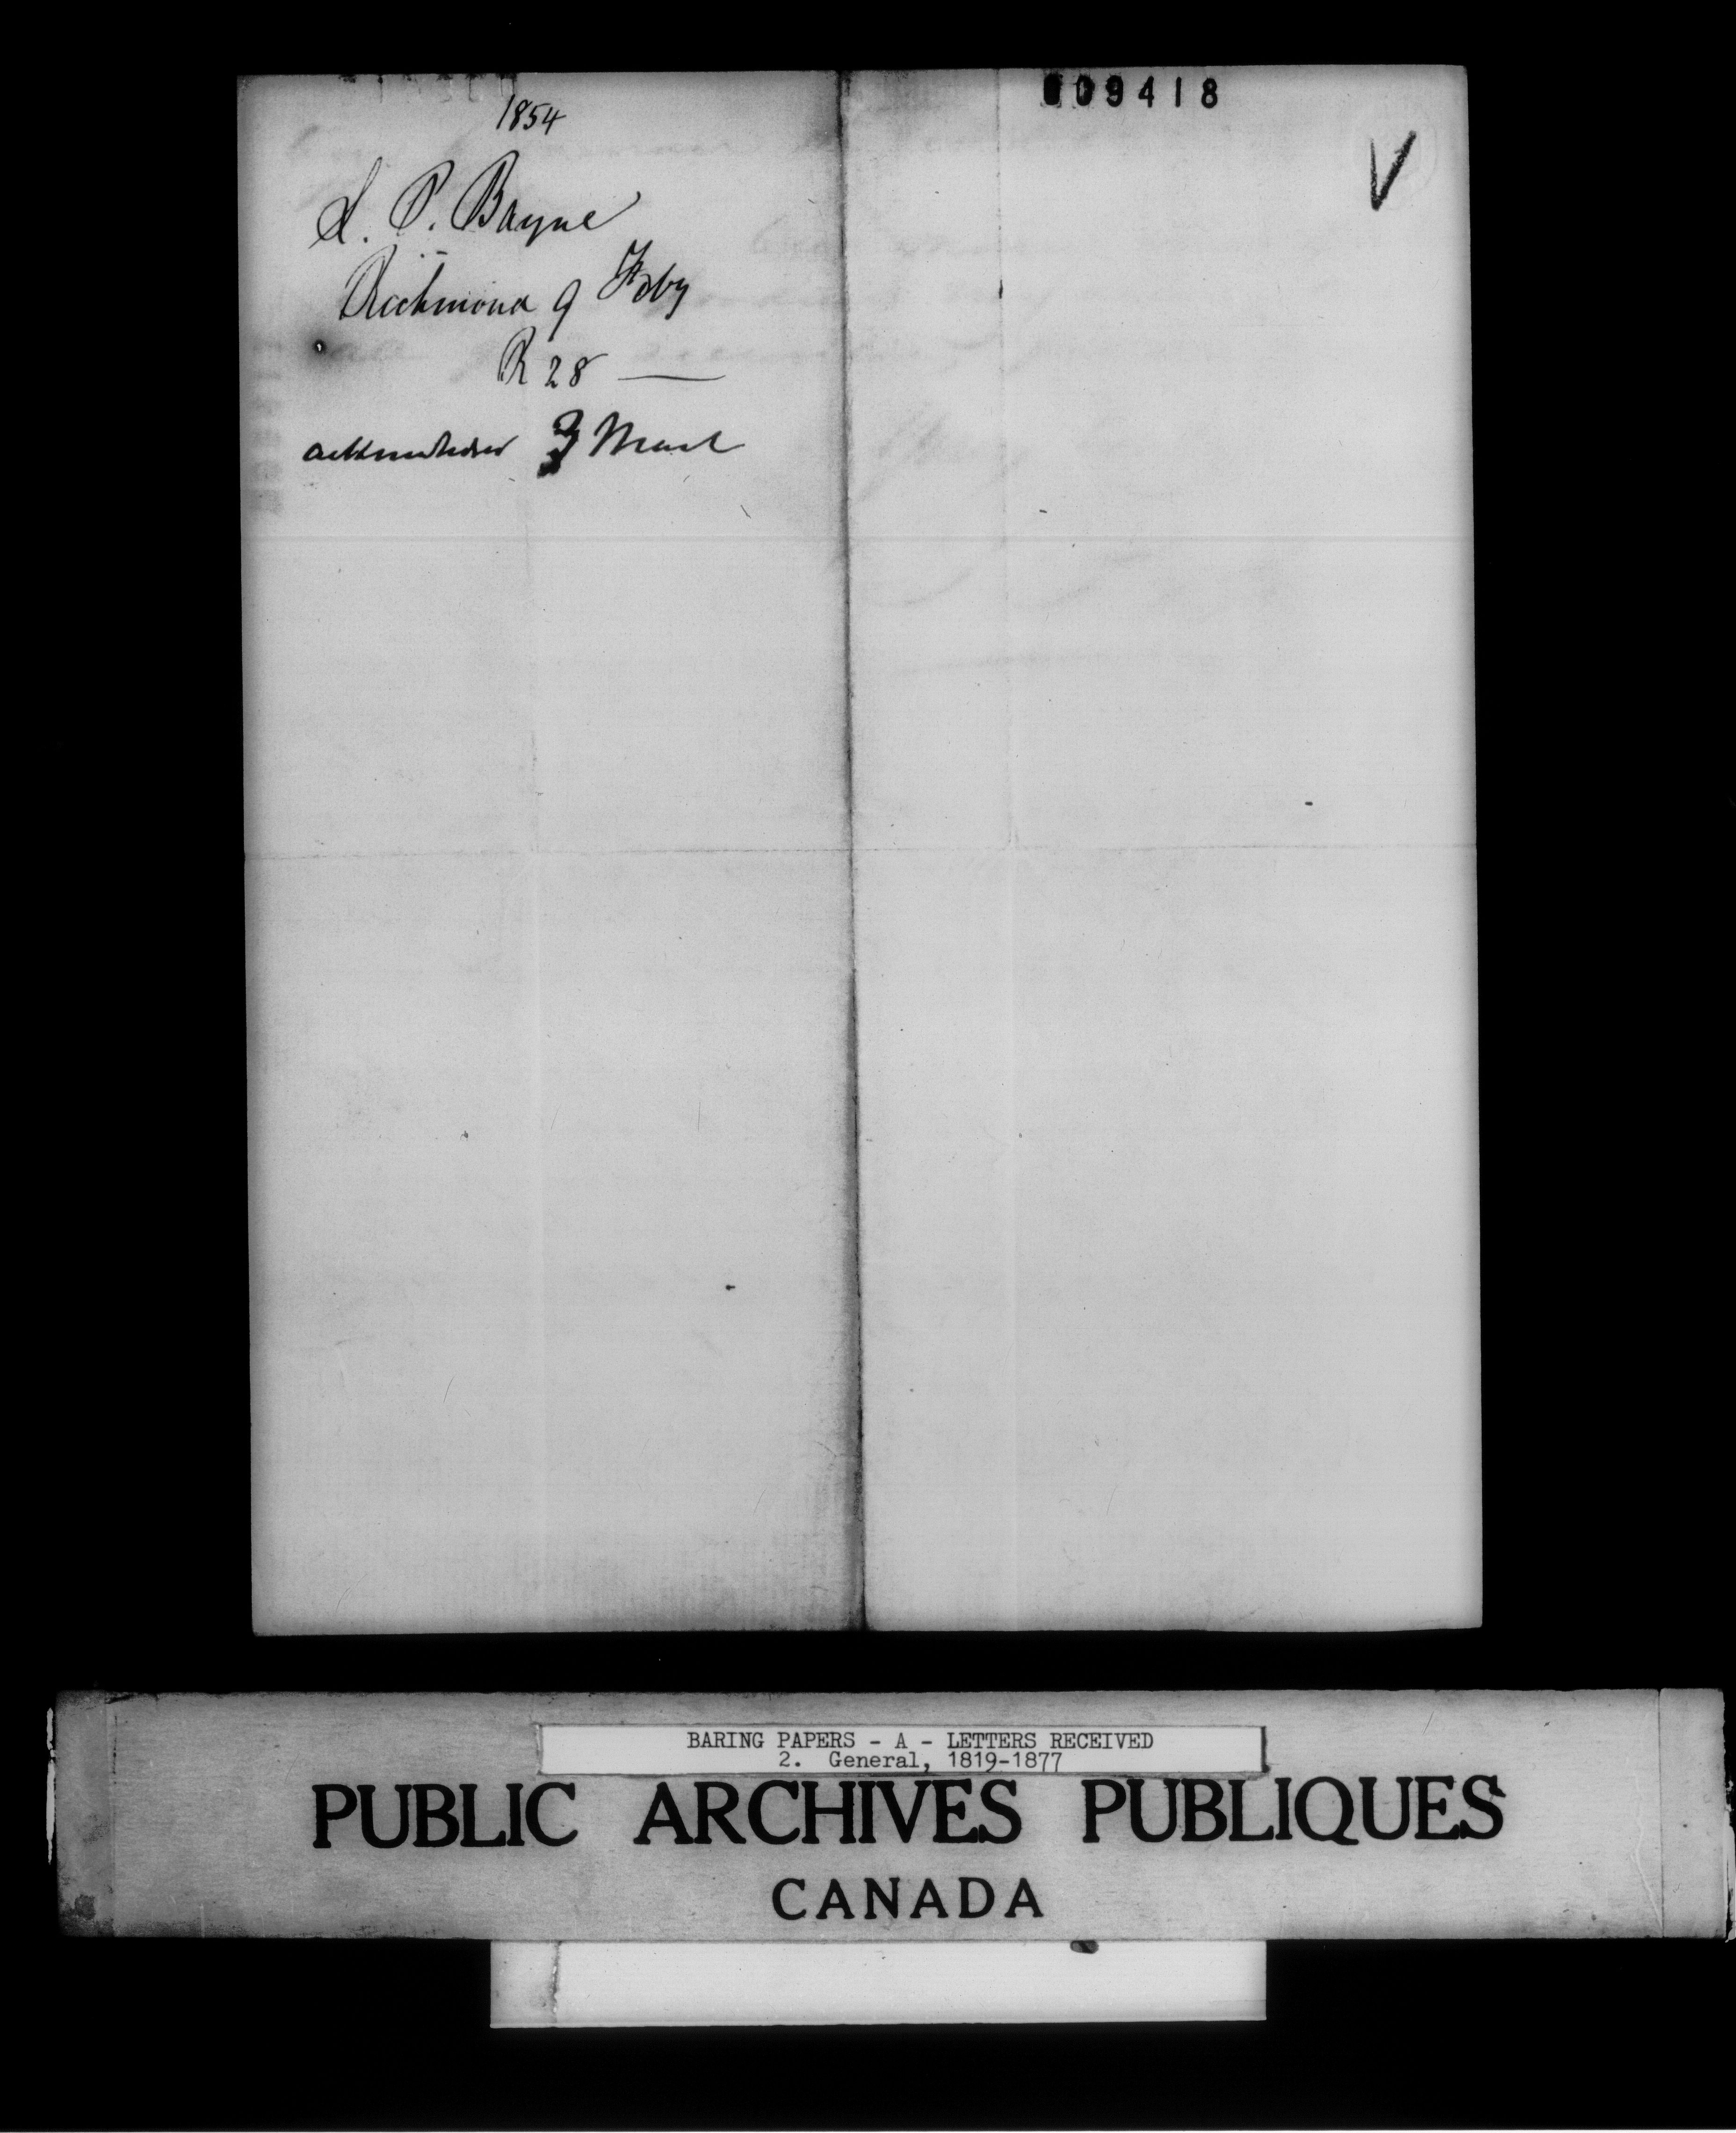 1854
L. P. Bayne
Richmond 9 Feby
R 28 —
acknowledged 3 March
009418
V
BARING PAPERS - A - LETTERS RECEIVED
2. General, 1819-1877
PUBLIC ARCHIVES PUBLIQUES
CANADA